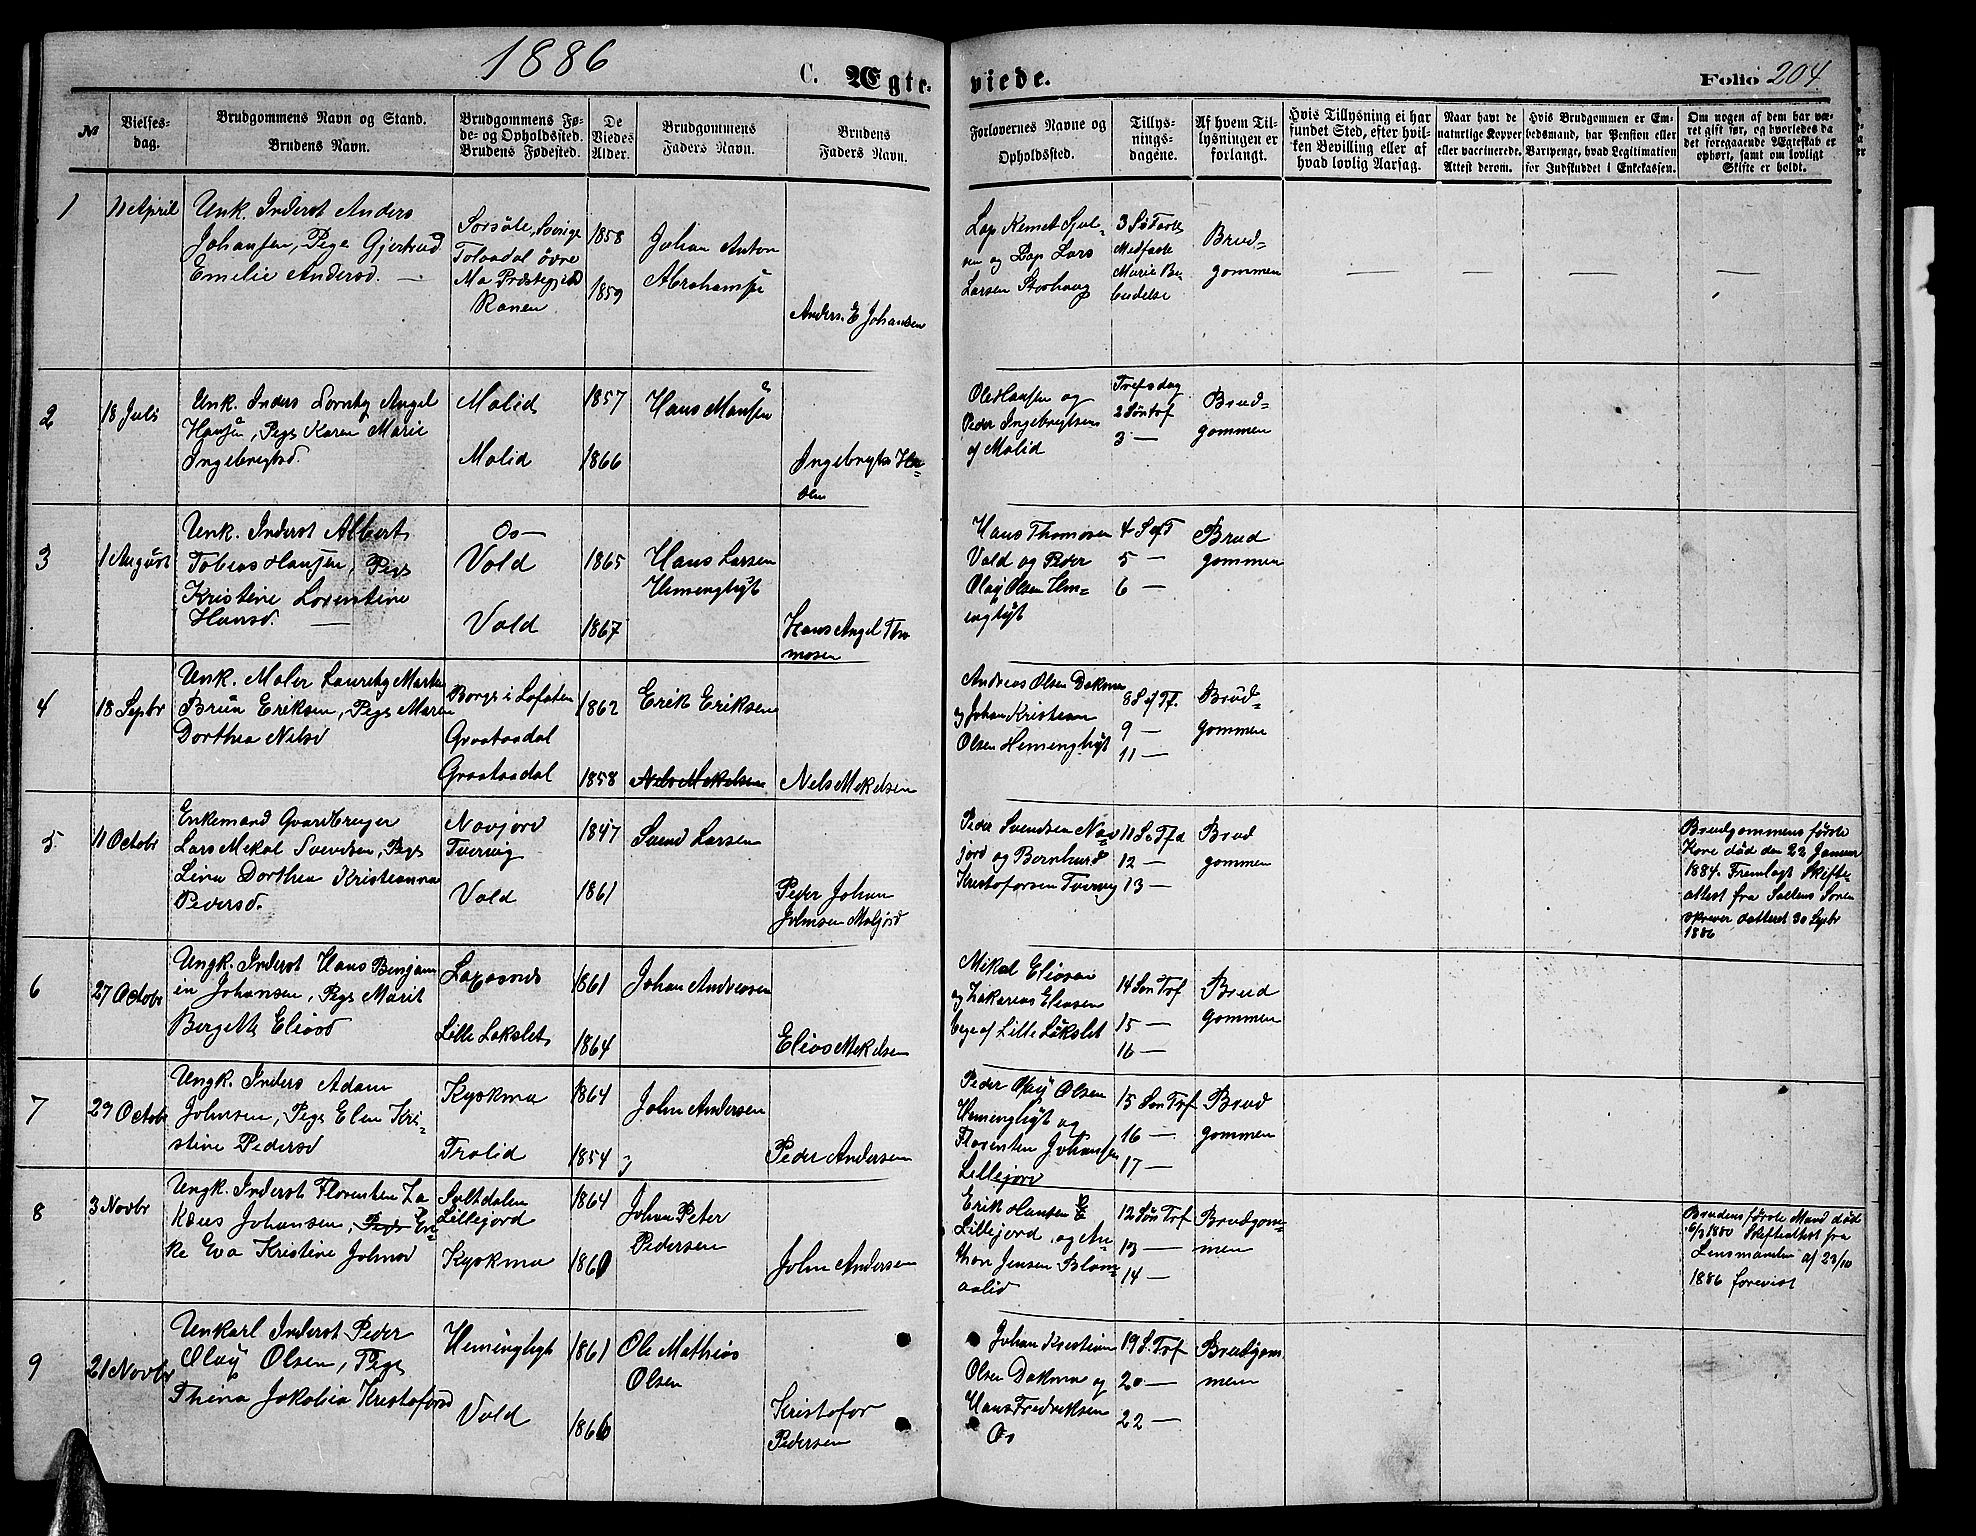 1886
C. Ægte-
viede.
Folio 204
№
Vielses-
dag.
Brudgommens Navn og Stand.
Brudens Navn.
Brudgommens Fø-
de- og Opholdssted.
Brudens Fødested.
De
Viedes
Alder.
Brudgommens
Faders Navn.
Brudens
Faders Navn.
Forlovernes Navne og
Opholdssted.
Tillys-
nings-
dagene.
Af hvem Til-
lysningen er
forlangt.
Hvis Tillysning ei har
fundet Sted, efter hvil-
ken Bevilling eller af
hvad lovlig Aarsag.
Naar havt de
naturlige Kopper
eller vaccinerede.
Attest derom.
Hvis Brudgommen er Em-
bedsmand, har Pension eller
Vartpenge, hvad Legitimation
for Indskuddet i Enkekassen.
Om nogen af dem har væ-
ret gift før, og hvorledes da
det foregaaende Ægteskab er
ophørt, samt om lovligt
Skifte er holdt.
1
11 April
Unk. Inderst Anders
Johansen, Pige Gjertrud
Emelie Andersd. —
Sorsöle, Sverige
Tolaadal övre
Mo Præstegjeld
Ranen
1858
1859
Johan Anton
Abrahamsen
Anders E Johansen
Lars Larsen Storhaug
3 S i Faste
Midfaste
Marie Be-
budelse
Brud-
gommen
— — — —
2
18 Juli
Unk. Inders Angel
Hansen, Pige Karen Marie
Ingebregtsd.
Molid
Molid
1857
1866
Hans Hansen
Ingebregt
Ole Hansen og
Peder Ingebregtsen
af Molid
Trefsdag
2 Søn Trf
3 —
Brud-
gommen
3
1 August
Unk. Inderst Albert
Tobias Hansen, Pige
Kristine Lorentine
Hansd. —
Os—
Vold
Vold
1865
1867
Hans Larsen
Hemmingligt
Hans Angel Tho
mosen
Hans Thomosen
Vold og Peder
Olaij Olsen Hem-
engligt
4 S ef T
5 —
6 —
Brud
gommen
4
18 Septbr
Unk. Maler Lauritz Martin
Brun Eriksen, Pige Maren
Dorthea Nilsd
Borge i Lofoten
Graataadal
Graataadal
1862
1858
Erik Eriksen
Nels Mekelsen
Nels Mekelsen
Andreas Olsen Dokmo
og Johan Kristian
Olsen Hemengligt
8 S ef Tf.
9 —
11 —
Brud-
gommen
5
11 Octobr
Enkemand Gaardbruger
Lars Mekal Svendsen, Pige
Lina Dorthea Kristianna
Pedersd.
Novjord
Tvervig
Vold
1847
1861
Svend Larsen
Peder Johan
Johnsen Moljord
Peder Svendsen Nov
jord og Bernhard
Kristofersen Tvervig
11 S. Tfd
12 —
13 —
Brud
gommen
Brudgommens første
Kone død den 22 Januar
1884. Fremlagt Skifte
attest fra Saltens Soren
skriver datteret 30 Septbr
1886
6
27 Octobr
Ungk. Inderst Hans Benjam
en Johansen, Pige Marit
Bergette Eliasd
Laxaanes
Lille Lakslet
1861
1864
Johan Andreasen
Elias Mekelsen
Mikal Eliasen
og Zakarias Eliasen
Bege af Lille Lakslet
14 Søn Trf
15 —
16 —
Brud
gommen
7
29 Octobr
Ungk. Inders Adam
Johnsen, Pige Elen Kri-
stine Pedersd
Kyokmo
Trolid
1864
1854
John Andersen
Peder Andersen
Peder Olaij Olsen
Hemengligt og
Florenten Johansen
Lillejord
15 Søn Trf
16 —
17 —
Brud
gommen
8
3 Novbr
Ungk. Inderst Florenten Za
Kæus Johansen, Pige En-
ke Eva Kristine Johnsd
Saltdalen
Lillejord
Kyokmo
1864
1860
Johan Peter
Pedersen
John Andersen
Erik Hansen E
Lillejord, og An-
thon Jensen Blom-
aalid
12 Søn Trf
13 —
14 —
Brudgom-
men
Brudens første Mand død
6/3 1880 Skifteattest fra
Lensmanden af 23/10
1886 forevist
9
21 Novbr
Unkarl Inderst Peder
Olaij Olsen, Pige
Thina Jakobia Kristofersd
Hemingligt
Vold
1861
1866
Ole Mathias
Olsen
Kristofer
Pedersen
Johan Kristian
Olsen Dokmo og
Hans Fredriksen
Os
19 S. Trf
20 —
22 —
Brudgom
men